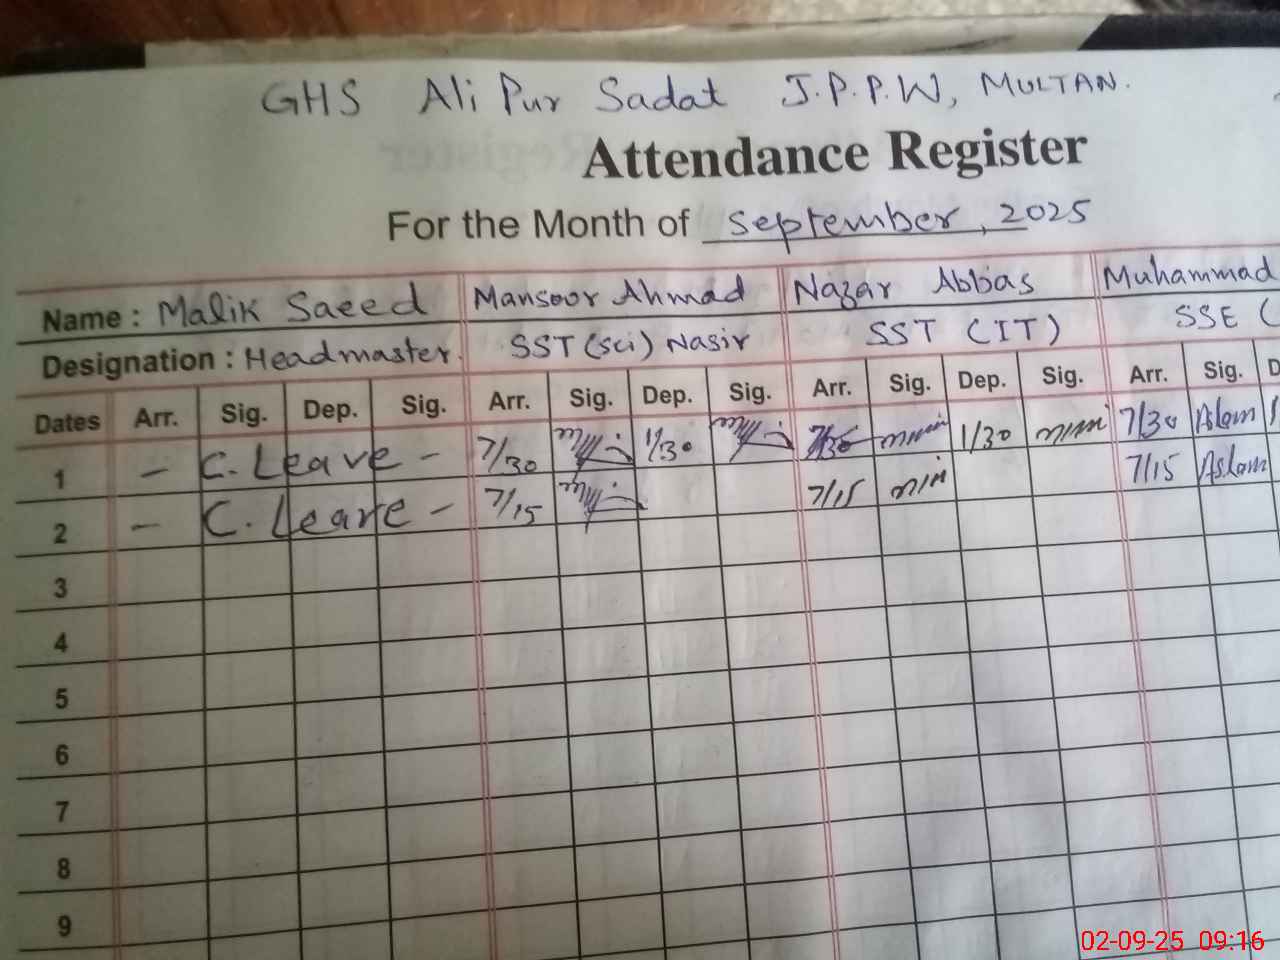 GHS Ali Pur Sadat J.P.P.W, MULTAN.
Attendance Register
For the Month of September, 2025
Name : Malik Saeed Mansoor Ahmad Nazar Abbas Muhammad
Designation : Headmaster. SST (sci) Nasir SST (IT) SSE (
Dates Arr. Sig. Dep. Sig. Arr. Sig. Dep. Sig. Arr. Sig. Dep. Sig. Arr. Sig. D
1 – C. Leave – 7/30 1/30 7/30 1/30 7/30 Aslam
2 – C. Leave – 7/15 7/15 7/15 Aslam
3
4
5
6
7
8
9
02-09-25 09:16